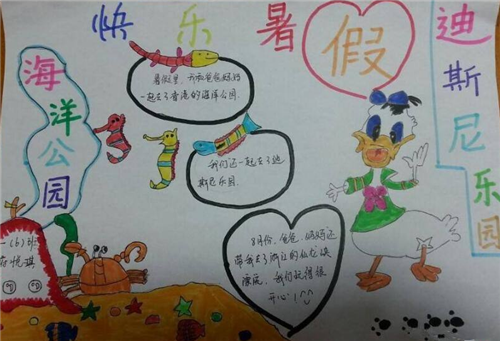 快乐暑假
迪斯尼乐园
海洋公园
暑假里,我和爸爸妈妈
一起去了香港的海洋公园.
我们还一起去了迪
斯尼乐园.
8月份,爸爸、妈妈还
带我去了浙江的仙龙峡
漂流,我们玩得很
开心!
一(6)班